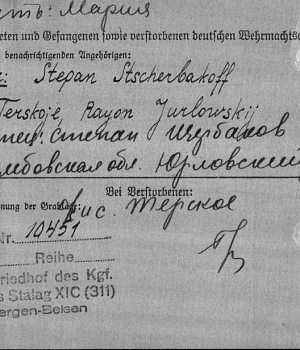 мать: Мария
eten und Gefangenen sowie verstorbenen deutschen Wehrmachtsa
benachrichtigenden Angehörigen:
Stepan Stscherbakoff
Terskoje Rayon Jurlowskij
отец: Степан Щербаков
мбовская обл. Юрловский
Bei Verstorbenen:
nung der Grablage:
с. Терское
Nr. 10451
Reihe
riedhof des Kgf.
s Stalag XIC (311)
ergen-Belsen